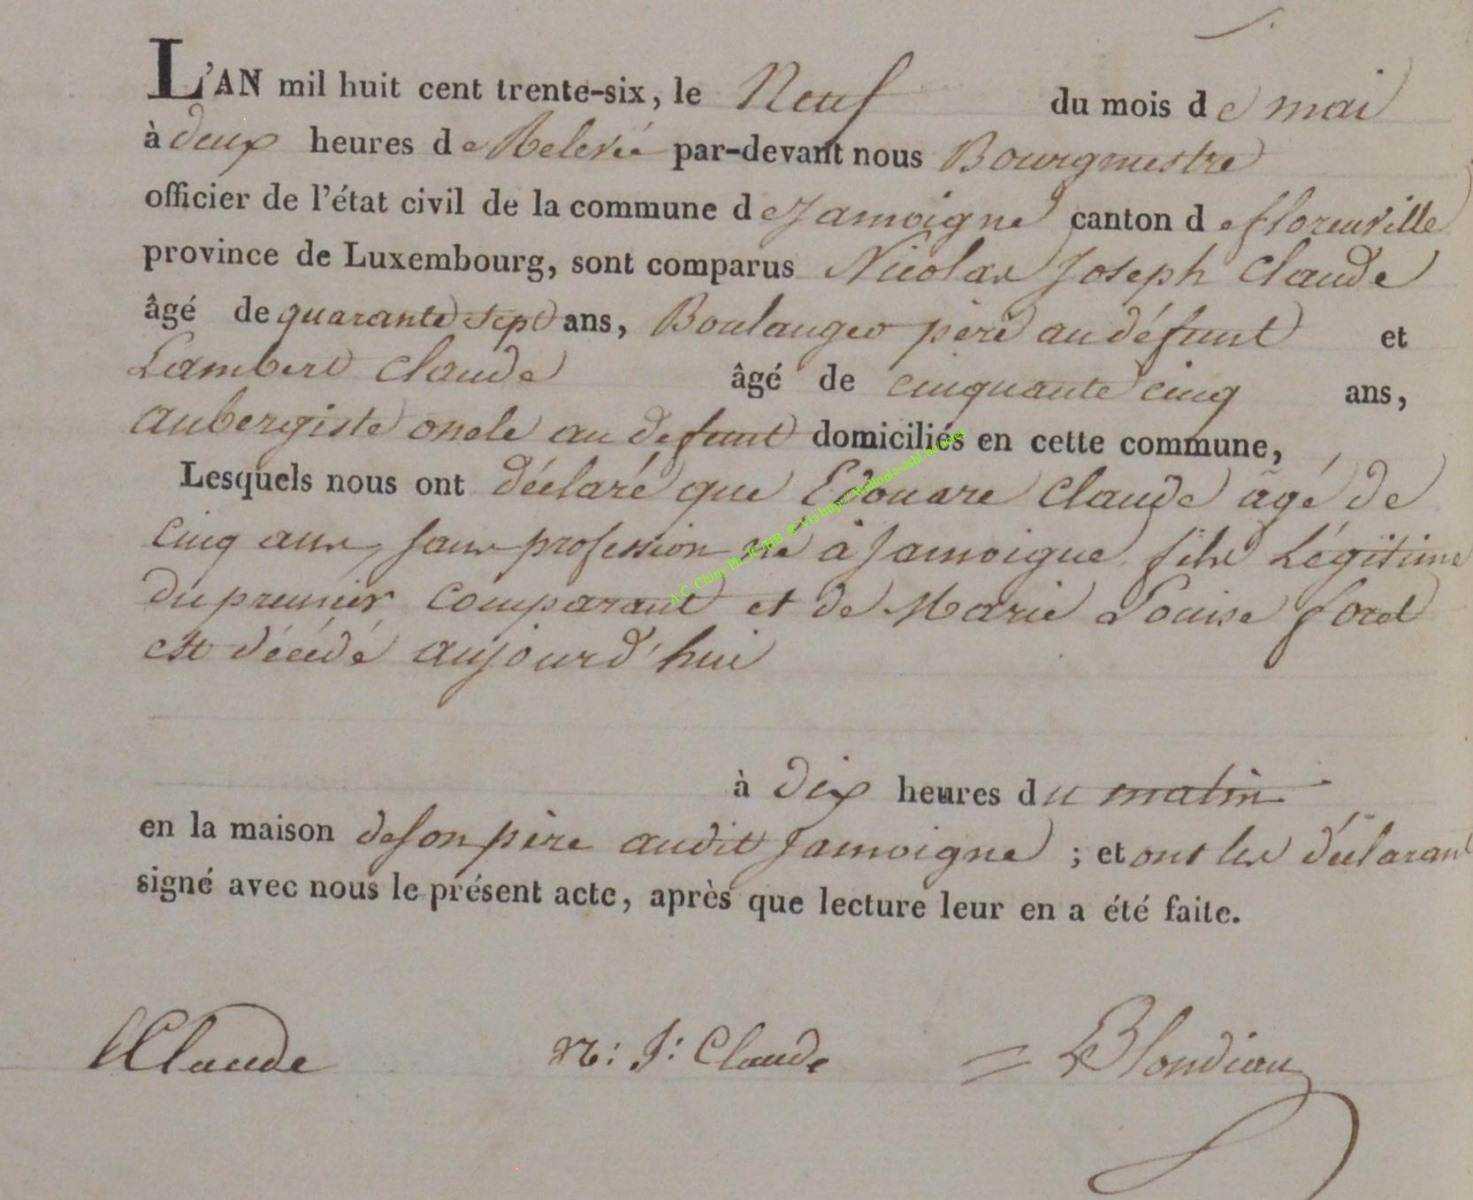 L'AN mil huit cent trente-six, le Neuf du mois de mai
à deux heures de Relevée par-devant nous Bourgmestre
officier de l'état civil de la commune de Jamoigne canton de florenville
province de Luxembourg, sont comparus Nicolas Joseph Claude
âgé de quarante sept ans, Boulanger père au défunt et
Lambert Claude âgé de cinquante cinq ans,
aubergiste oncle au défunt domiciliés en cette commune,
Lesquels nous ont déclaré que Edouare Claude âgé de
cinq ans, sans profession né à Jamoigne fils Légitime
du premier comparant et de Marie Louise foret
est décédé aujourd'hui
à dix heures du matin
en la maison de son père audit Jamoigne ; et ont les déclarant
signé avec nous le présent acte, après que lecture leur en a été faite.
LClaude n: J: Claude = Blondiau